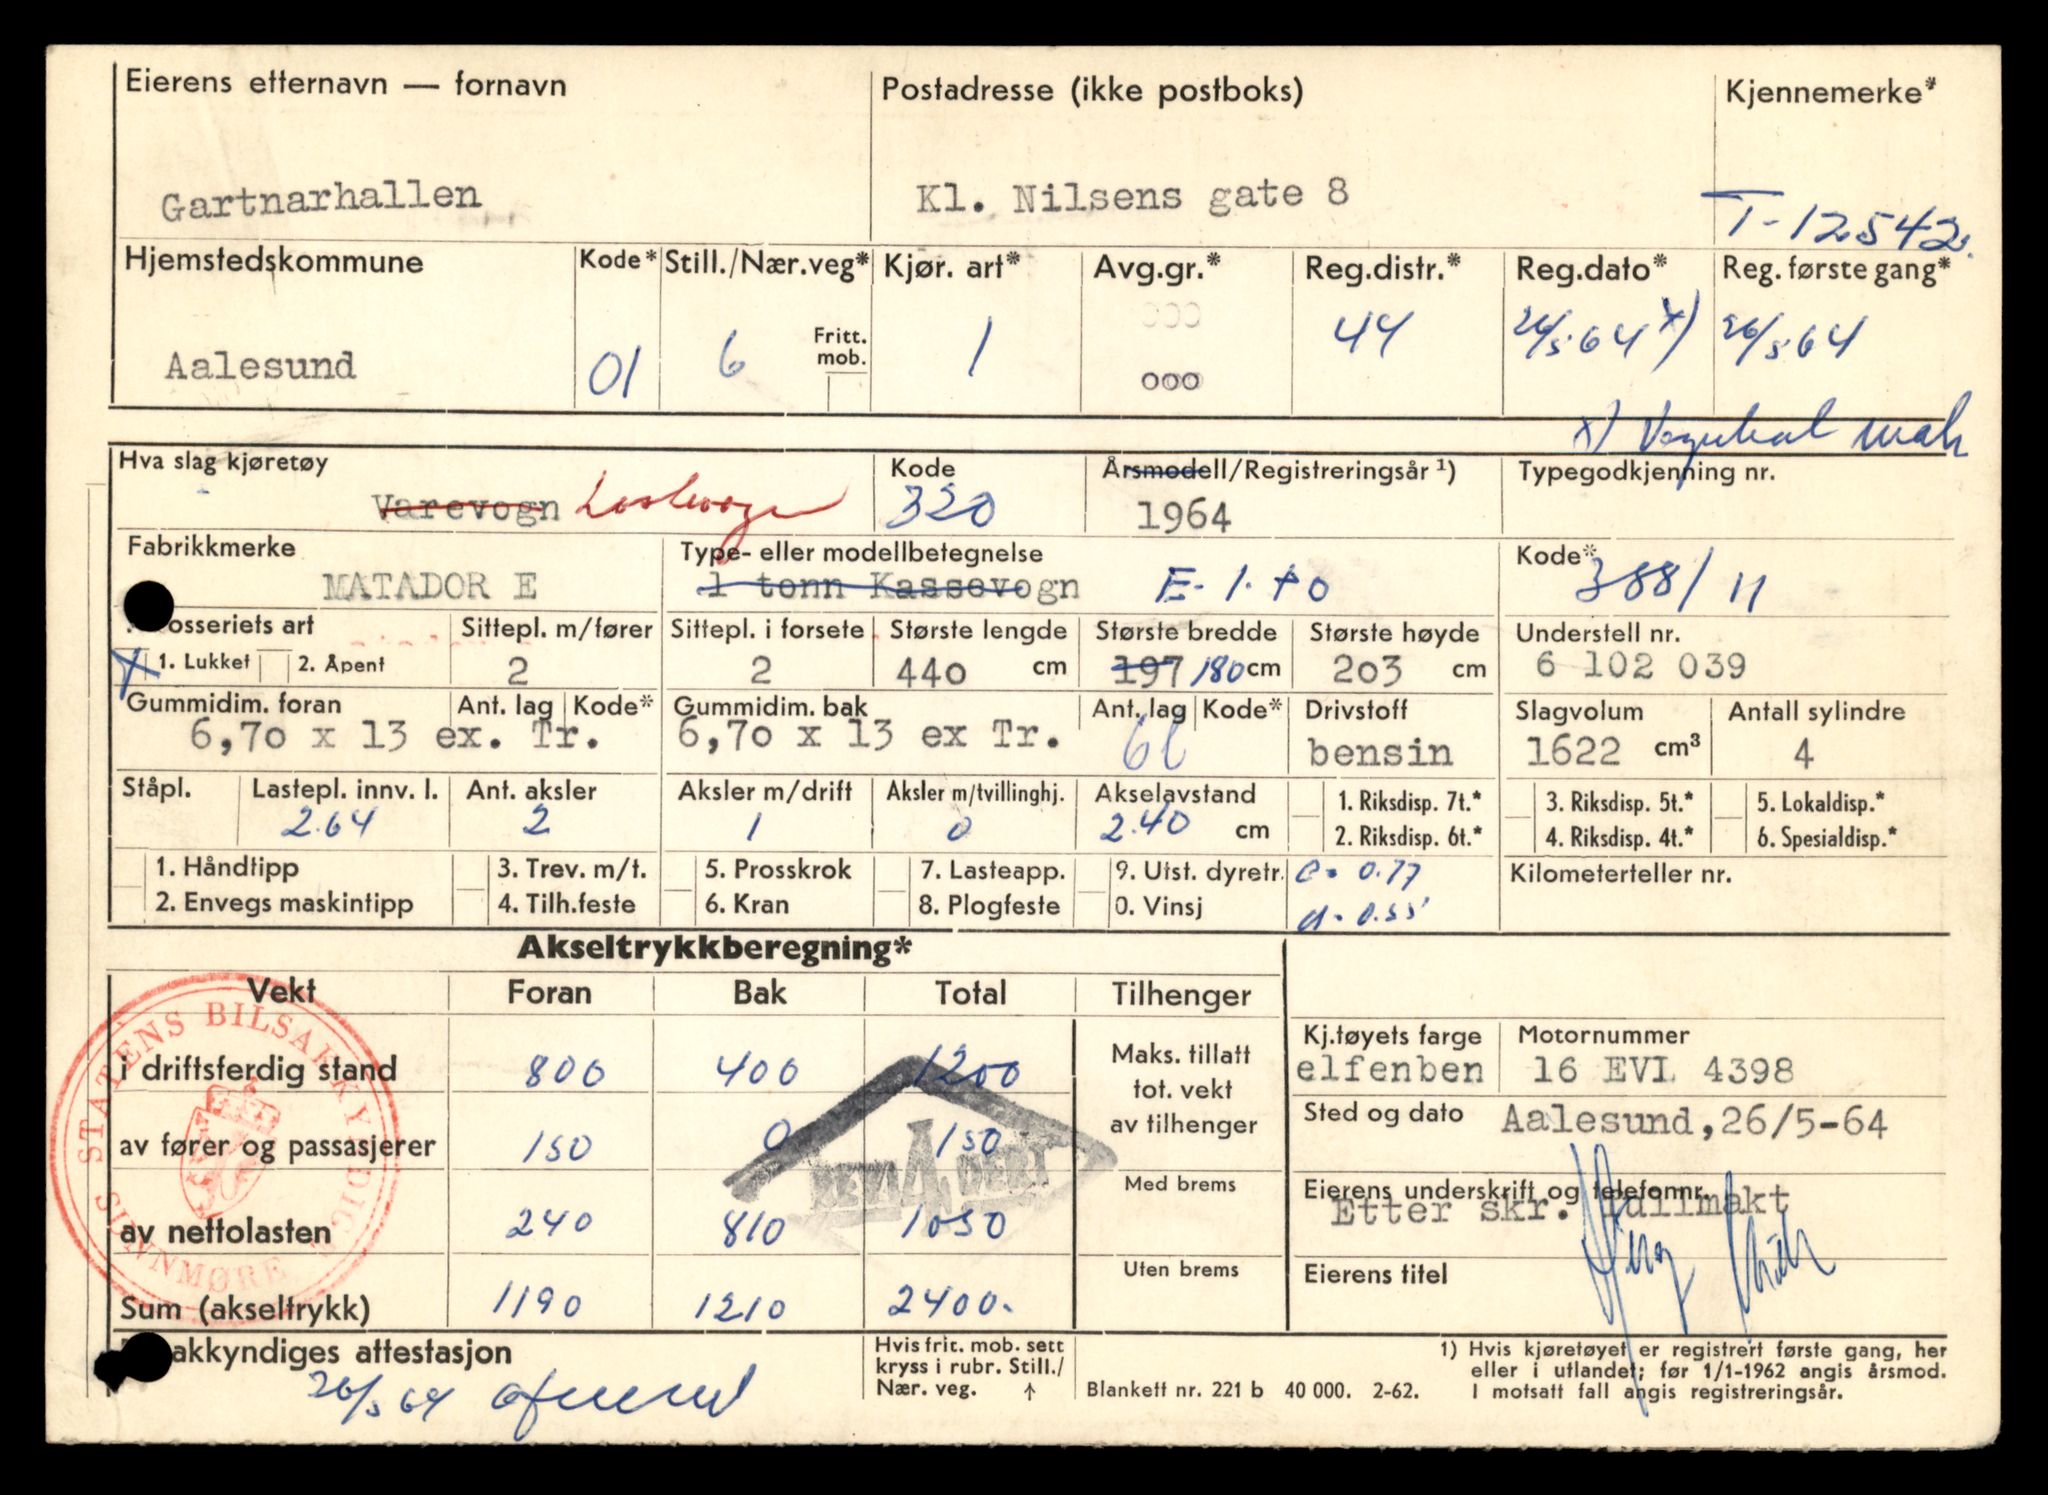 Eierens etternavn — fornavn Postadresse (ikke postboks) Kjennemerke*
Gartnarhallen Kl. Nilsens gate 8 T-12542.
Hjemstedskommune Kode* Still./Nær.veg* Kjør. art* Avg.gr.* Reg.distr.* Reg.dato* Reg. første gang*
Aalesund 01 6 Fritt. mob. 1 000 000 44 26/5-64 x) 26/5 64
x)
Hva slag kjøretøy Kode Årsmodell/Registreringsår ¹) Typegodkjenning nr.
Varevogn Lastevogn 320 1964
Fabrikkmerke Type- eller modellbetegnelse Kode*
MATADOR E 1 tonn Kassevogn E-1. to 388/11
osseriets art Sittepl. m/fører Sittepl. i forsete Største lengde Største bredde Største høyde Understell nr.
X 1. Lukket 2. Åpent 2 2 440 cm 197 180 cm 203 cm 6 102 039
Gummidim. foran Ant. lag Kode* Gummidim. bak Ant. lag Kode* Drivstoff Slagvolum Antall sylindre
6,70 x 13 ex. Tr. 6,70 x 13 ex Tr. 6l bensin 1622 cm³ 4
Ståpl. Lastepl. innv. l. Ant. aksler Aksler m/drift Aksler m/tvillinghj. Akselavstand 1. Riksdisp. 7t.* 3. Riksdisp. 5t.* 5. Lokaldisp.*
2.64 2 1 0 2.40 cm 2. Riksdisp. 6t.* 4. Riksdisp. 4t.* 6. Spesialdisp.*
1. Håndtipp 3. Trev. m/t. 5. Prosskrok 7. Lasteapp. 9. Utst. dyretr. c= 0.77 Kilometerteller nr.
2. Envegs maskintipp 4. Tilh.feste 6. Kran 8. Plogfeste 0. Vinsj a= 0.55
Akseltrykkberegning*
Vekt Foran Bak Total Tilhenger
STATENS BILSAKKYNDIGE SUNNMØRE
Kj.tøyets farge Motornummer
i driftsferdig stand 800 400 1200 Maks. tillatt elfenben 16 EVI 4398
tot. vekt
av fører og passasjerer 150 0 150 av tilhenger Sted og dato Aalesund, 26/5-64
REVIDERT
Med brems Eierens underskrift og telefonnr.
Etter skr. fullmakt
av nettolasten 240 810 1050
Uten brems Eierens titel
Sum (akseltrykk) 1190 1210 2400.
akkyndiges attestasjon Hvis frit. mob. sett 1) Hvis kjøretøyet er registrert første gang, her
kryss i rubr. Still./ eller i utlandet; før 1/1-1962 angis årsmod.
26/5 64 Nær. veg. ↑ Blankett nr. 221 b 40 000. 2-62. I motsatt fall angis registreringsår.